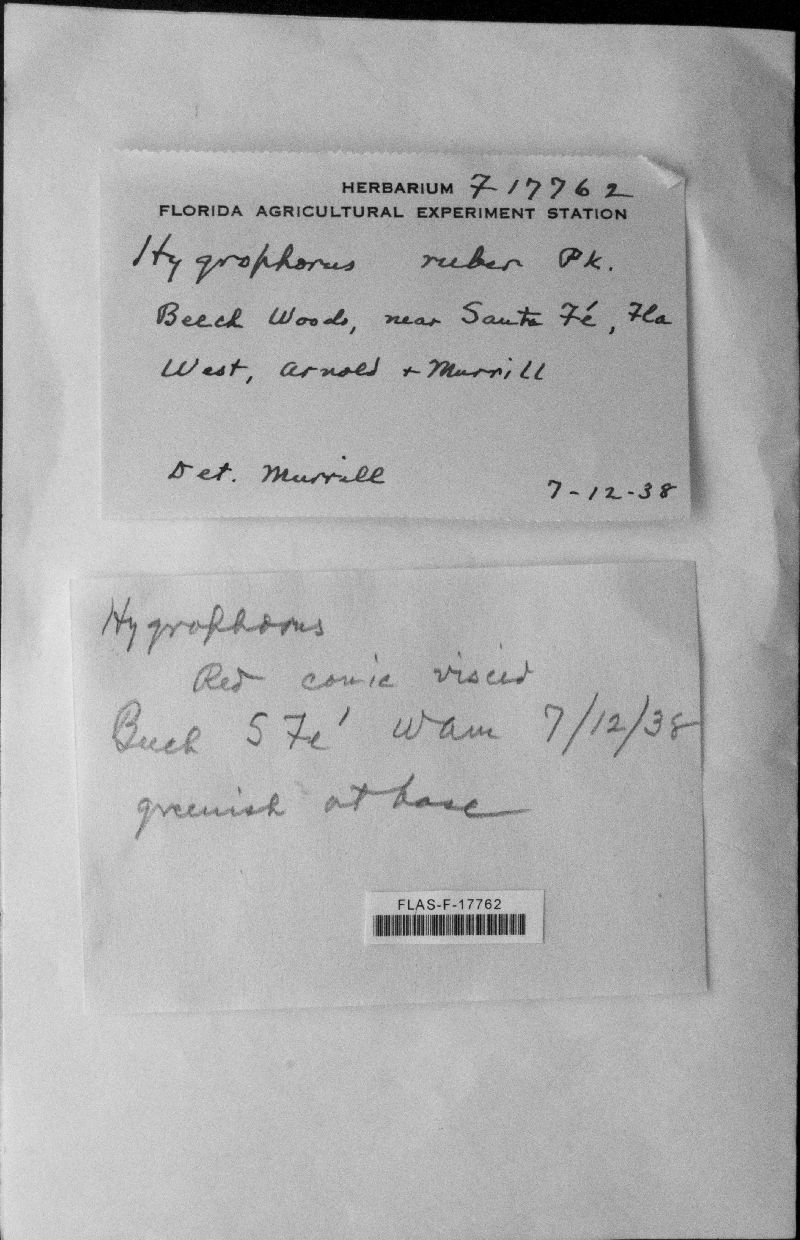 HERBARIUM F 17762
FLORIDA AGRICULTURAL EXPERIMENT STATION
Hygrophorus ruber Pk.
Beech Woods, near Santa Fé, Fla
West, Arnold + Murrill
Det. Murrill
7-12-38
Hygrophorus
Red conic viscid
Beech S Fe' WAM 7/12/38
greenish at base
FLAS-F-17762